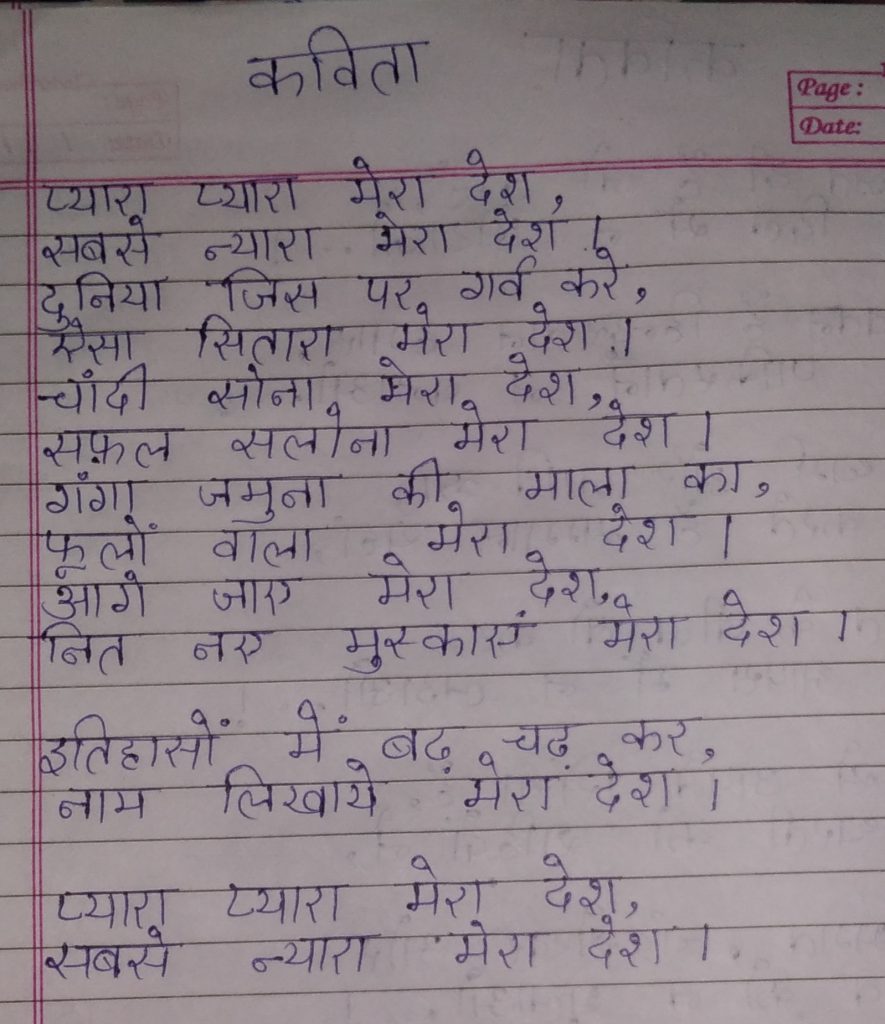 कविता
Page :
Date:
प्यारा प्यारा मेरा देश,
सबसे न्यारा मेरा देश।
दुनिया जिस पर गर्व करे,
ऐसा सितारा मेरा देश।
चांदी सोना मेरा देश,
सफ़ल सलोना मेरा देश।
गंगा जमुना की माला का,
फूलों वाला मेरा देश।
आगे जाए मेरा देश,
नित नए मुस्काएं मेरा देश।
इतिहासों में बढ़ चढ़ कर,
नाम लिखाये मेरा देश।
प्यारा प्यारा मेरा देश,
सबसे न्यारा मेरा देश।